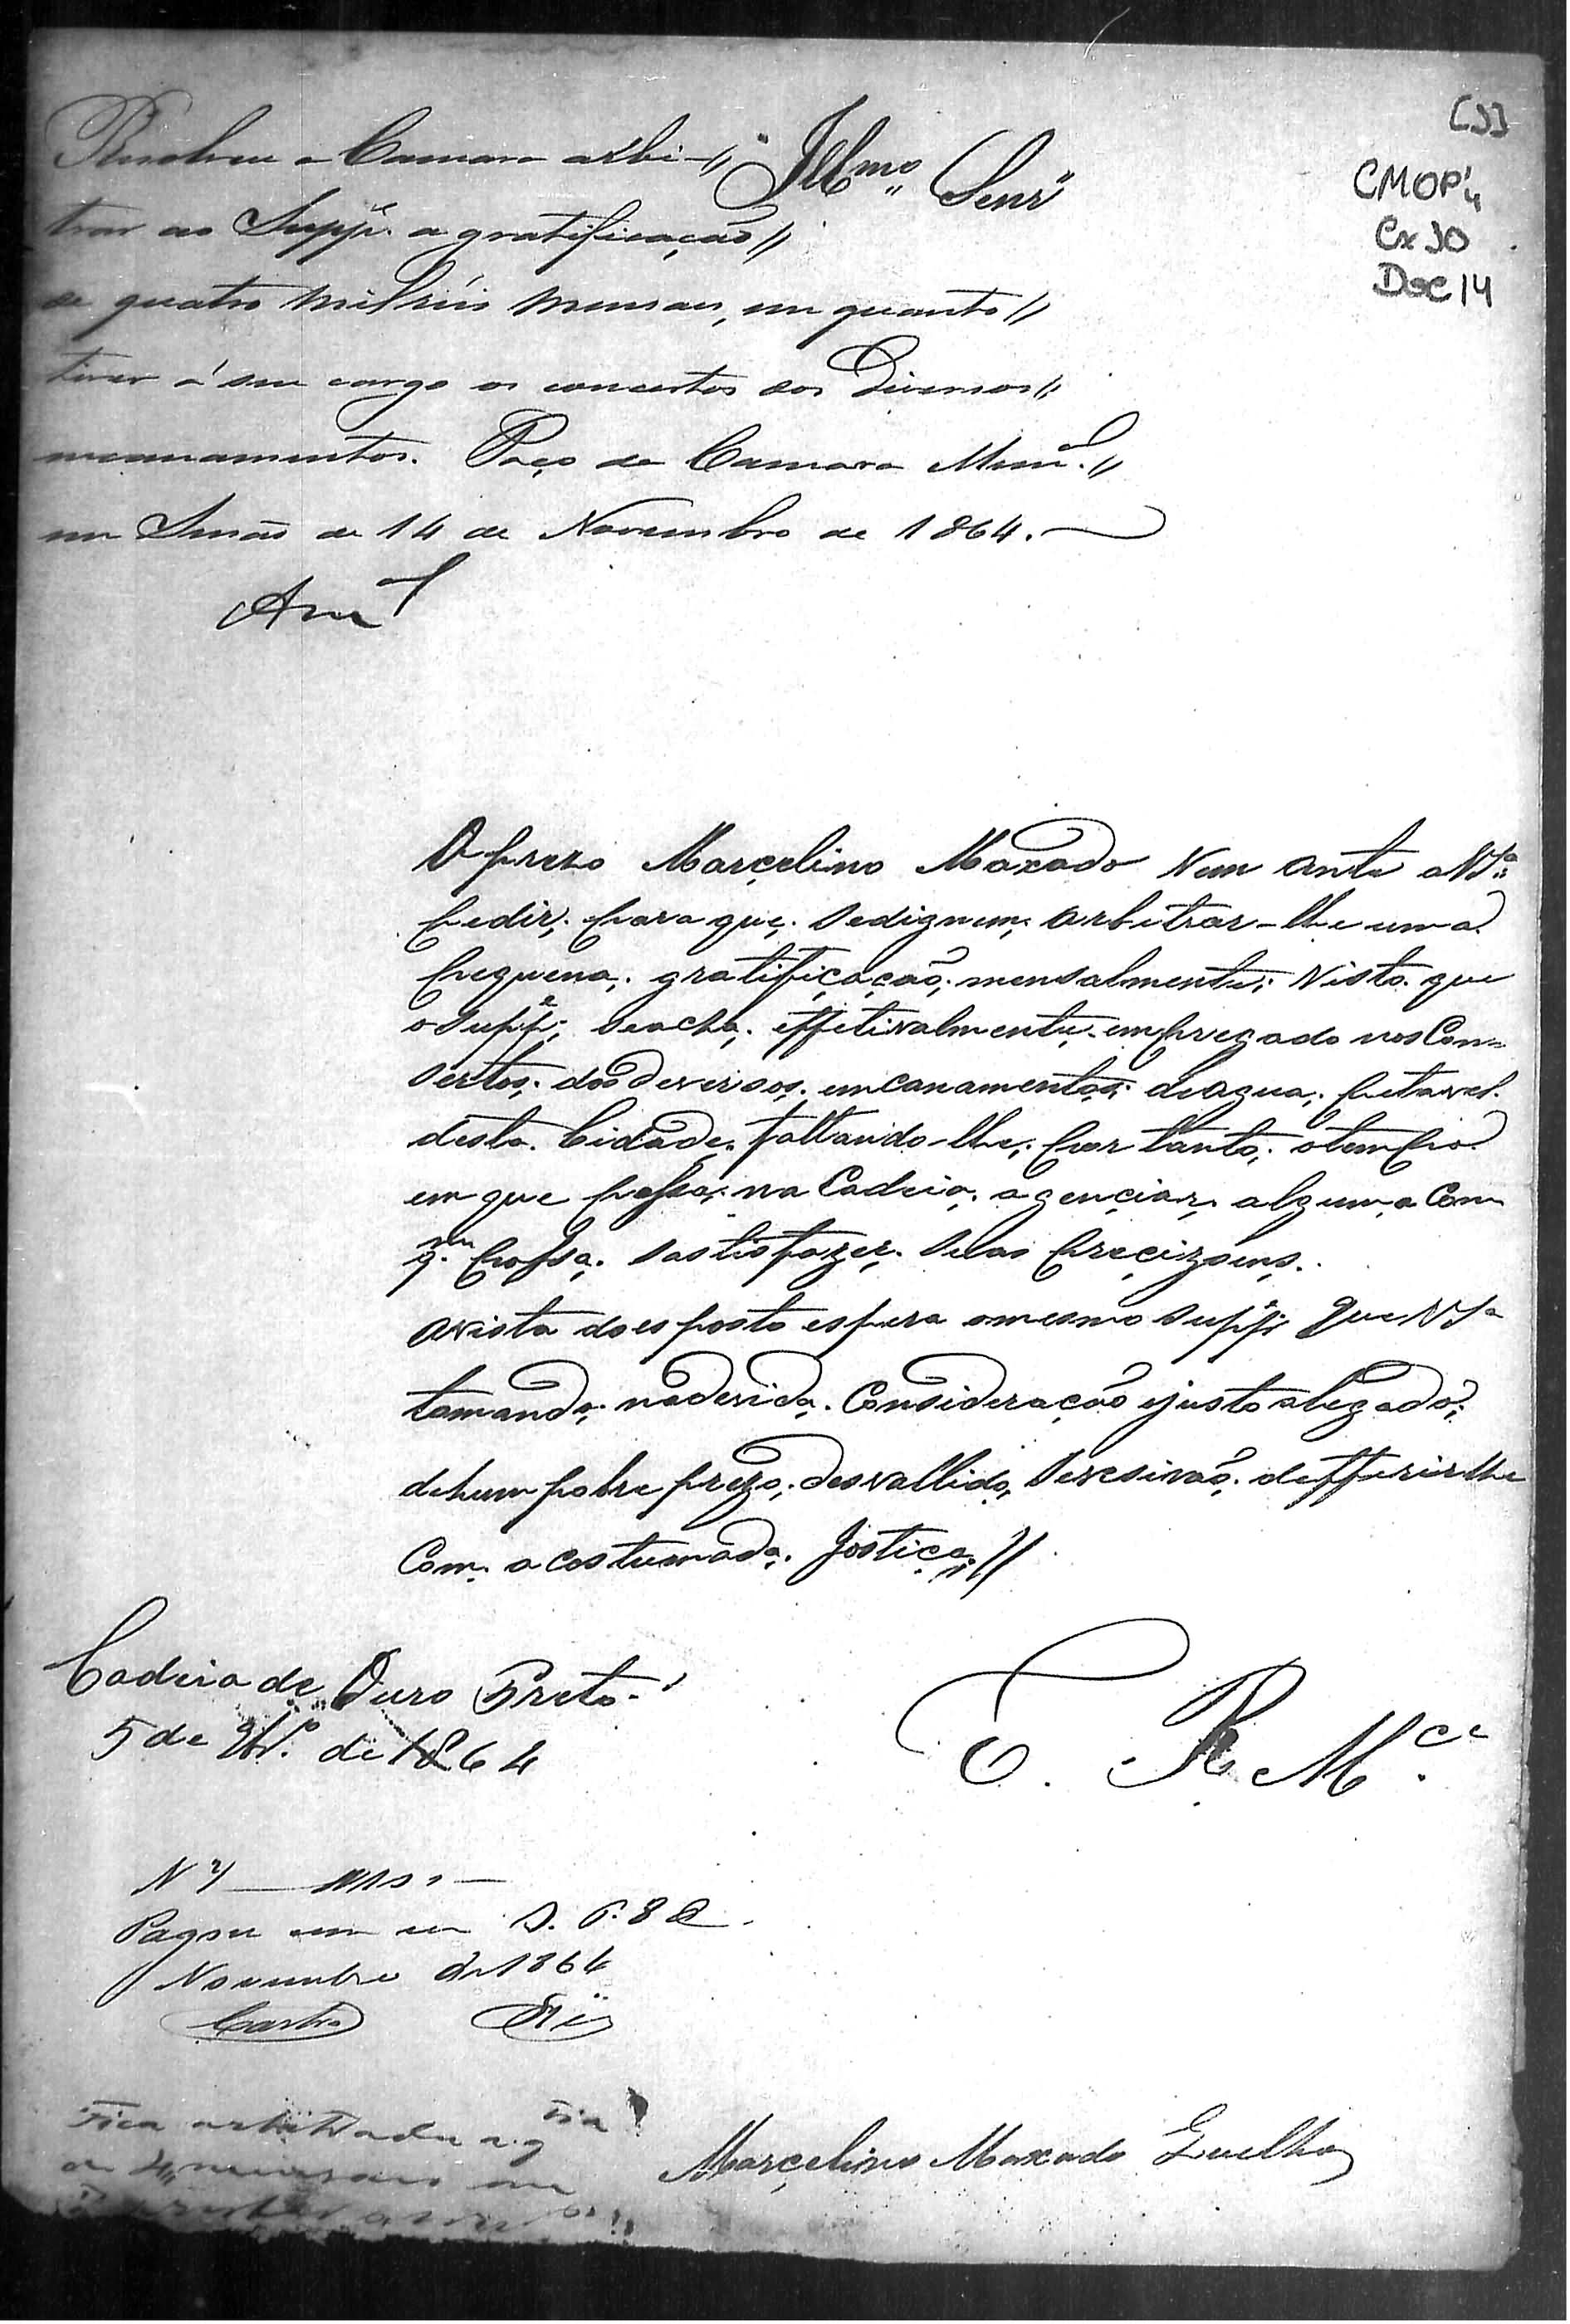 [1]
CMOP
Cx 30
Doc 14
Illmo Senr
Resolveu a Camara arbi-
trar ao Suppe. a gratificação
de quatro mil réis mensaes, em quanto
tiver á seu cargo os concertos dos diversos
encanamentos. Paço da Camara Mun.al
em Sessão de 14 de Novembro de 1864.
O prezo Marçelino Maxado Vem ante a VSa.
pedir; para que; Sedignem; arbitrar-lhe uma
pequena; gratifiçação; mensalmente; Visto que
o Suppe; Seacha; effetivalmente; empregado nos Con=
sertos; dos deversos; emcanamentos; deagua; putavel.
desta. Cidade; faltando-lhe; por tanto; otempo
em que possa; na Cadeia; agençiar; alguma Com
q.m possa; sastisfazer; Suas preçizoens.
avista do esposto espera omesmo Suppe; que VSa
tomando; nadevida; Consideração ojusto alegado;
dehum pobre prezo; desvallido, defferirlhe
Com. acostumada; Jostiça;
Cadeia de Ouro Preto
5 de 9br.o de 1864
E. R. M.ce
Pague-se em
Novembro de 1864
Castro
Fica arbitrada a g
Marçelino Maxado